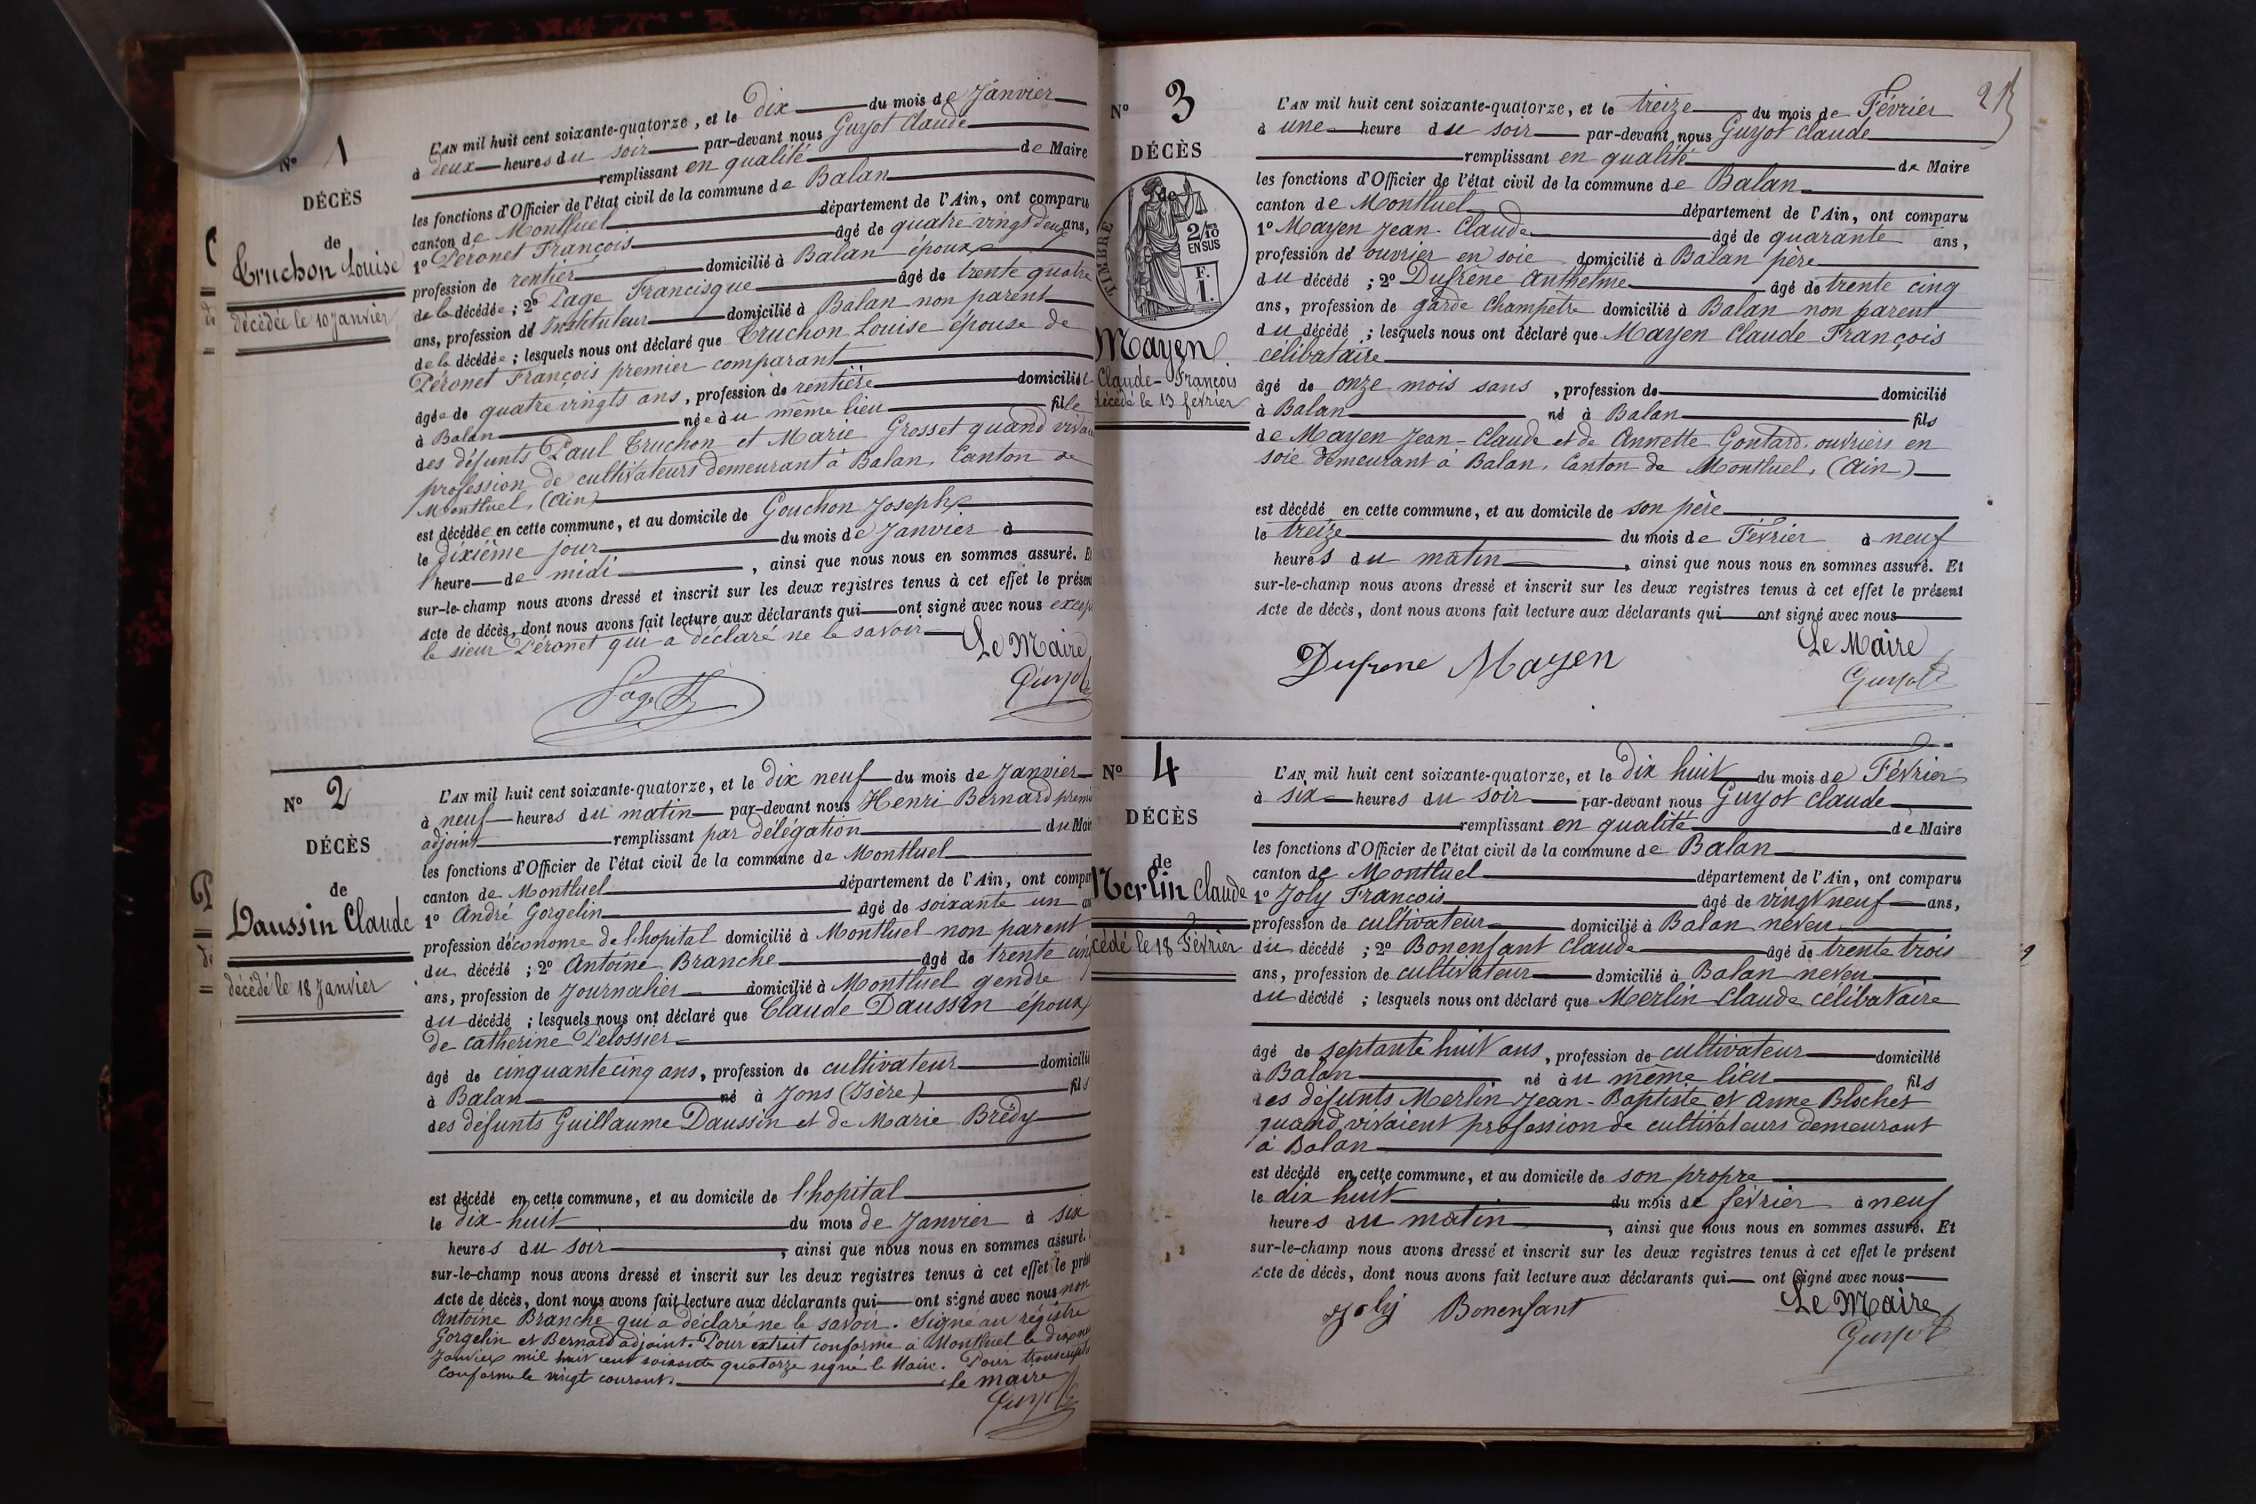 N° 1
DÉCÈS
de
Truchon Louise
décédée le 10 Janvier
L'AN mil huit cent soixante-quatorze, et le dix du mois de Janvier
à deux heures du soir par-devant nous Guyot Claude
remplissant en qualité de Maire
les fonctions d'Officier de l'état civil de la commune de Balan
canton de Montluel département de l'Ain, ont comparu
1° Péronet François âgé de quatre vingt deux ans,
profession de rentier domicilié à Balan époux
de la décédée ; 2° Page Francisque âgé de trente quatre
ans, profession de Instituteur domicilié à Balan non parent
de la décédée ; lesquels nous ont déclaré que Truchon Louise épouse de
Péronet François premier comparant
âgée de quatre vingts ans, profession de rentière domicilié
à Balan née au même lieu fille
des défunts Paul Truchon et Marie Grosset quand
profession de cultivateurs demeurant à Balan, Canton de
Montluel, (Ain)
est décédée en cette commune, et au domicile de Gouchon Joseph
le dixième jour du mois de Janvier à
l'heure de midi , ainsi que nous nous en sommes assuré. Et
sur-le-champ nous avons dressé et inscrit sur les deux registres tenus à cet effet le présent
Acte de décès, dont nous avons fait lecture aux déclarants qui ont signé avec nous
le sieur Péronet qui a déclaré ne le savoir
Le Maire
Page Guyot
N° 2
DÉCÈS
de
Daussin Claude
décédé le 18 Janvier
L'AN mil huit cent soixante-quatorze, et le dix neuf du mois de Janvier
à neuf heures du matin par-devant nous Henri Bernard
adjoint remplissant par délégation du Mai
les fonctions d'Officier de l'état civil de la commune de Montluel
canton de Montluel département de l'Ain, ont
1° André Gorgelin âgé de soixante un
profession d'économe de l'hopital domicilié à Montluel non parent
du décédé ; 2° Antoine Branche âgé de trente cinq
ans, profession de Journalier domicilié à Montluel gendre
du décédé ; lesquels nous ont déclaré que Claude Daussin époux
de Catherine Pelossier
âgé de cinquante cinq ans, profession de cultivateur domicilié
à Balan né à Jons (Isère) fils
des défunts Guillaume Daussin et de Marie Brédy
est décédé en cette commune, et au domicile de l'hopital
le dix-huit du mois de Janvier à six
heures du soir , ainsi que nous nous en sommes assuré.
sur-le-champ nous avons dressé et inscrit sur les deux registres tenus à cet effet le
Acte de décès, dont nous avons fait lecture aux déclarants qui ont signé avec nous non
Antoine Branche qui a déclaré ne le savoir. Signé au régistre
Gorgelin et Bernard adjoint. Pour extrait conforme à Montluel le
Janvier mil huit cent soixante quatorze signé le Maire. Pour
conforme le vingt courant.
Le maire
Guyot
N° 3
DÉCÈS
de
TIMBRE
2/10
EN SUS
F.
I.
Mayen
Claude-François
décédé le 13 février
L'AN mil huit cent soixante-quatorze, et le treize du mois de Février
à une heure du soir par-devant nous Guyot Claude
remplissant en qualité de Maire
les fonctions d'Officier de l'état civil de la commune de Balan
canton de Montluel département de l'Ain, ont comparu
1° Mayen Jean-Claude âgé de quarante ans,
profession de ouvrier en soie domicilié à Balan père
du décédé ; 2° Dufrène Anthelme âgé de trente cinq
ans, profession de garde Champêtre domicilié à Balan non parent
du décédé ; lesquels nous ont déclaré que Mayen Claude François
célibataire
âgé de onze mois sans , profession de domicilié
à Balan né à Balan fils
de Mayen Jean-Claude et de Annette Gontard ouvriers en
soie demeurant à Balan, Canton de Montluel, (Ain)
est décédé en cette commune, et au domicile de son père
le treize du mois de Février à neuf
heures du matin , ainsi que nous nous en sommes assuré. Et
sur-le-champ nous avons dressé et inscrit sur les deux registres tenus à cet effet le présent
Acte de décès, dont nous avons fait lecture aux déclarants qui ont signé avec nous
Le Maire
Dufrene Mayen Guyot
N° 4
DÉCÈS
de
Merlin Claude
cédé le 18 Février
L'AN mil huit cent soixante-quatorze, et le dix huit du mois de Février
à six heures du soir par-devant nous Guyot Claude
remplissant en qualité de Maire
les fonctions d'Officier de l'état civil de la commune de Balan
canton de Montluel département de l'Ain, ont comparu
1° Joly François âgé de vingt neuf ans,
profession de cultivateur domicilié à Balan neveu
du décédé ; 2° Bonenfant Claude âgé de trente trois
ans, profession de cultivateur domicilié à Balan neveu
du décédé ; lesquels nous ont déclaré que Merlin Claude célibataire
âgé de septante huit ans, profession de cultivateur domicilié
à Balan né au même lieu fils
des défunts Merlin Jean-Baptiste et Anne Blochet
quand vivaient profession de cultivateurs demeurant
à Balan
est décédé en cette commune, et au domicile de son propre
le dix huit du mois de février à neuf
heures du matin , ainsi que nous nous en sommes assuré. Et
sur-le-champ nous avons dressé et inscrit sur les deux registres tenus à cet effet le présent
Acte de décès, dont nous avons fait lecture aux déclarants qui ont signé avec nous
Le Maire
Joly Bonenfant Guyot